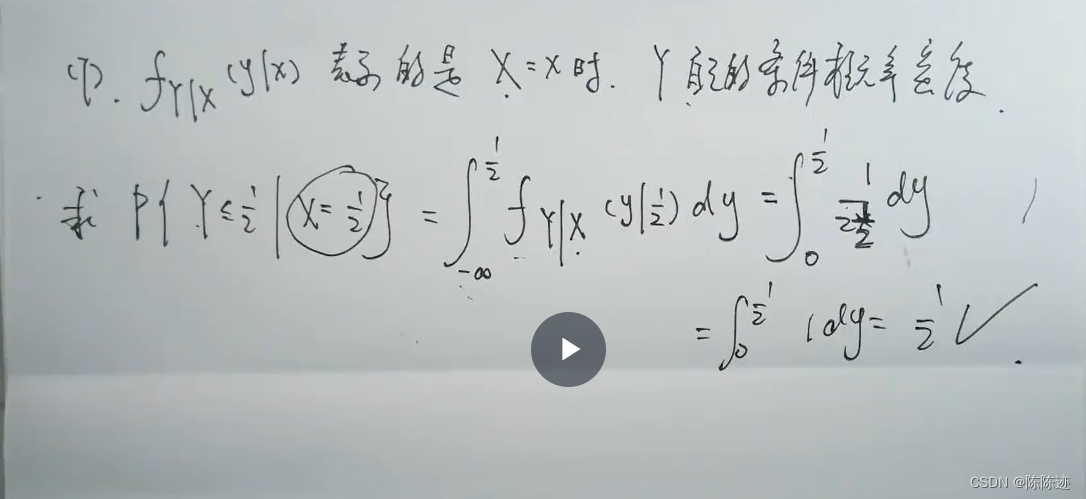 (7). f_{Y|X}(y|x) 表示的是 X=x 时. Y 的条件概率密度.
求 P{Y≤1/2 | X=1/2} = ∫_{-∞}^{1/2} f_{Y|X}(y|1/2) dy = ∫_0^{1/2} dy
= ∫_0^{1/2} 1 dy = 1/2 ✓.
CSDN @陈陈迹